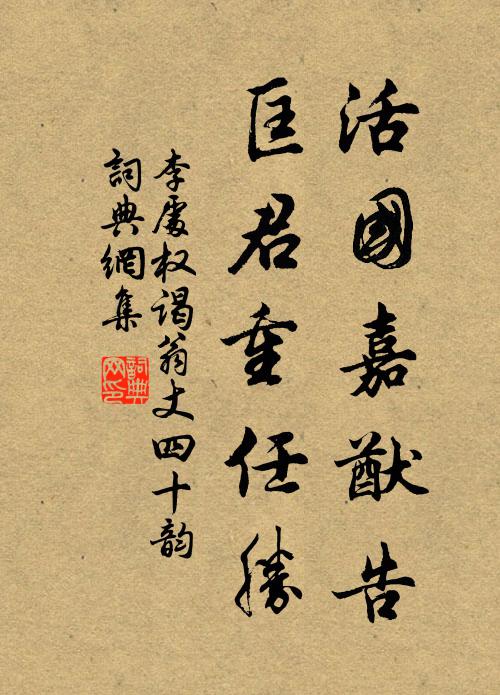 活國嘉猷告
匡君重任勝
李處权谒翁丈四十韵
詞典網集
詞典網印